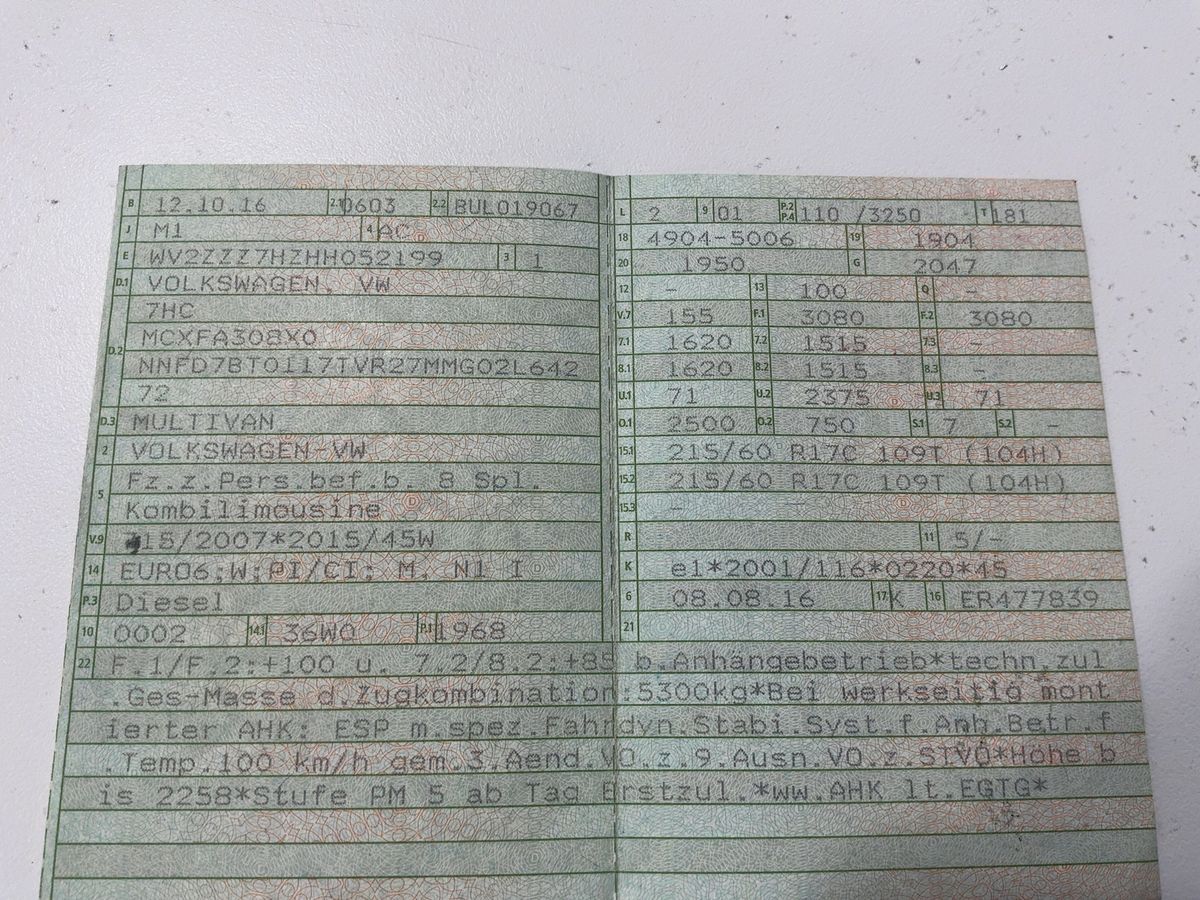 B 12.10.16 2.1 0603 2.2 BUL019067
J M1 4 AC
E WV2ZZZ7HZHH052199 3 1
D.1 VOLKSWAGEN, VW
7HC
D.2 MCXFA308X0
NNFD7BT0I17TVR27MMG02L642
72
D.3 MULTIVAN
2 VOLKSWAGEN-VW
5 Fz.z.Pers.bef.b. 8 Spl.
Kombilimousine
V.9 715/2007*2015/45W
14 EURO6;W;PI/CI; M, N1 I
P.3 Diesel
10 0002 14.1 36W0 P.1 1968
L 2 9 01 P.2 P.4 110 /3250 - T 181
18 4904-5006 19 1904
20 1950 G 2047
12 - 13 100 Q -
V.7 155 F.1 3080 F.2 3080
7.1 1620 7.2 1515 7.3 -
8.1 1620 8.2 1515 8.3 -
U.1 71 U.2 2375 U.3 71
O.1 2500 O.2 750 S.1 7 S.2 -
15.1 215/60 R17C 109T (104H)
15.2 215/60 R17C 109T (104H)
15.3 -
R 11 5/-
K e1*2001/116*0220*45 -
6 08.08.16 17 K 16 ER477839
21
22 F.1/F.2:+100 u. 7.2/8.2:+85 b.Anhängebetrieb*techn.zul
.Ges-Masse d.Zugkombination:5300kg*Bei werkseitig mont
ierter AHK: ESP m.spez.Fahrdyn.Stabi.Syst.f.Anh.Betr.f
.Temp.100 km/h gem.3.Aend.VO.z.9.Ausn.VO.z.STVO*Höhe b
is 2258*Stufe PM 5 ab Tag Erstzul.*ww.AHK lt.EGTG*